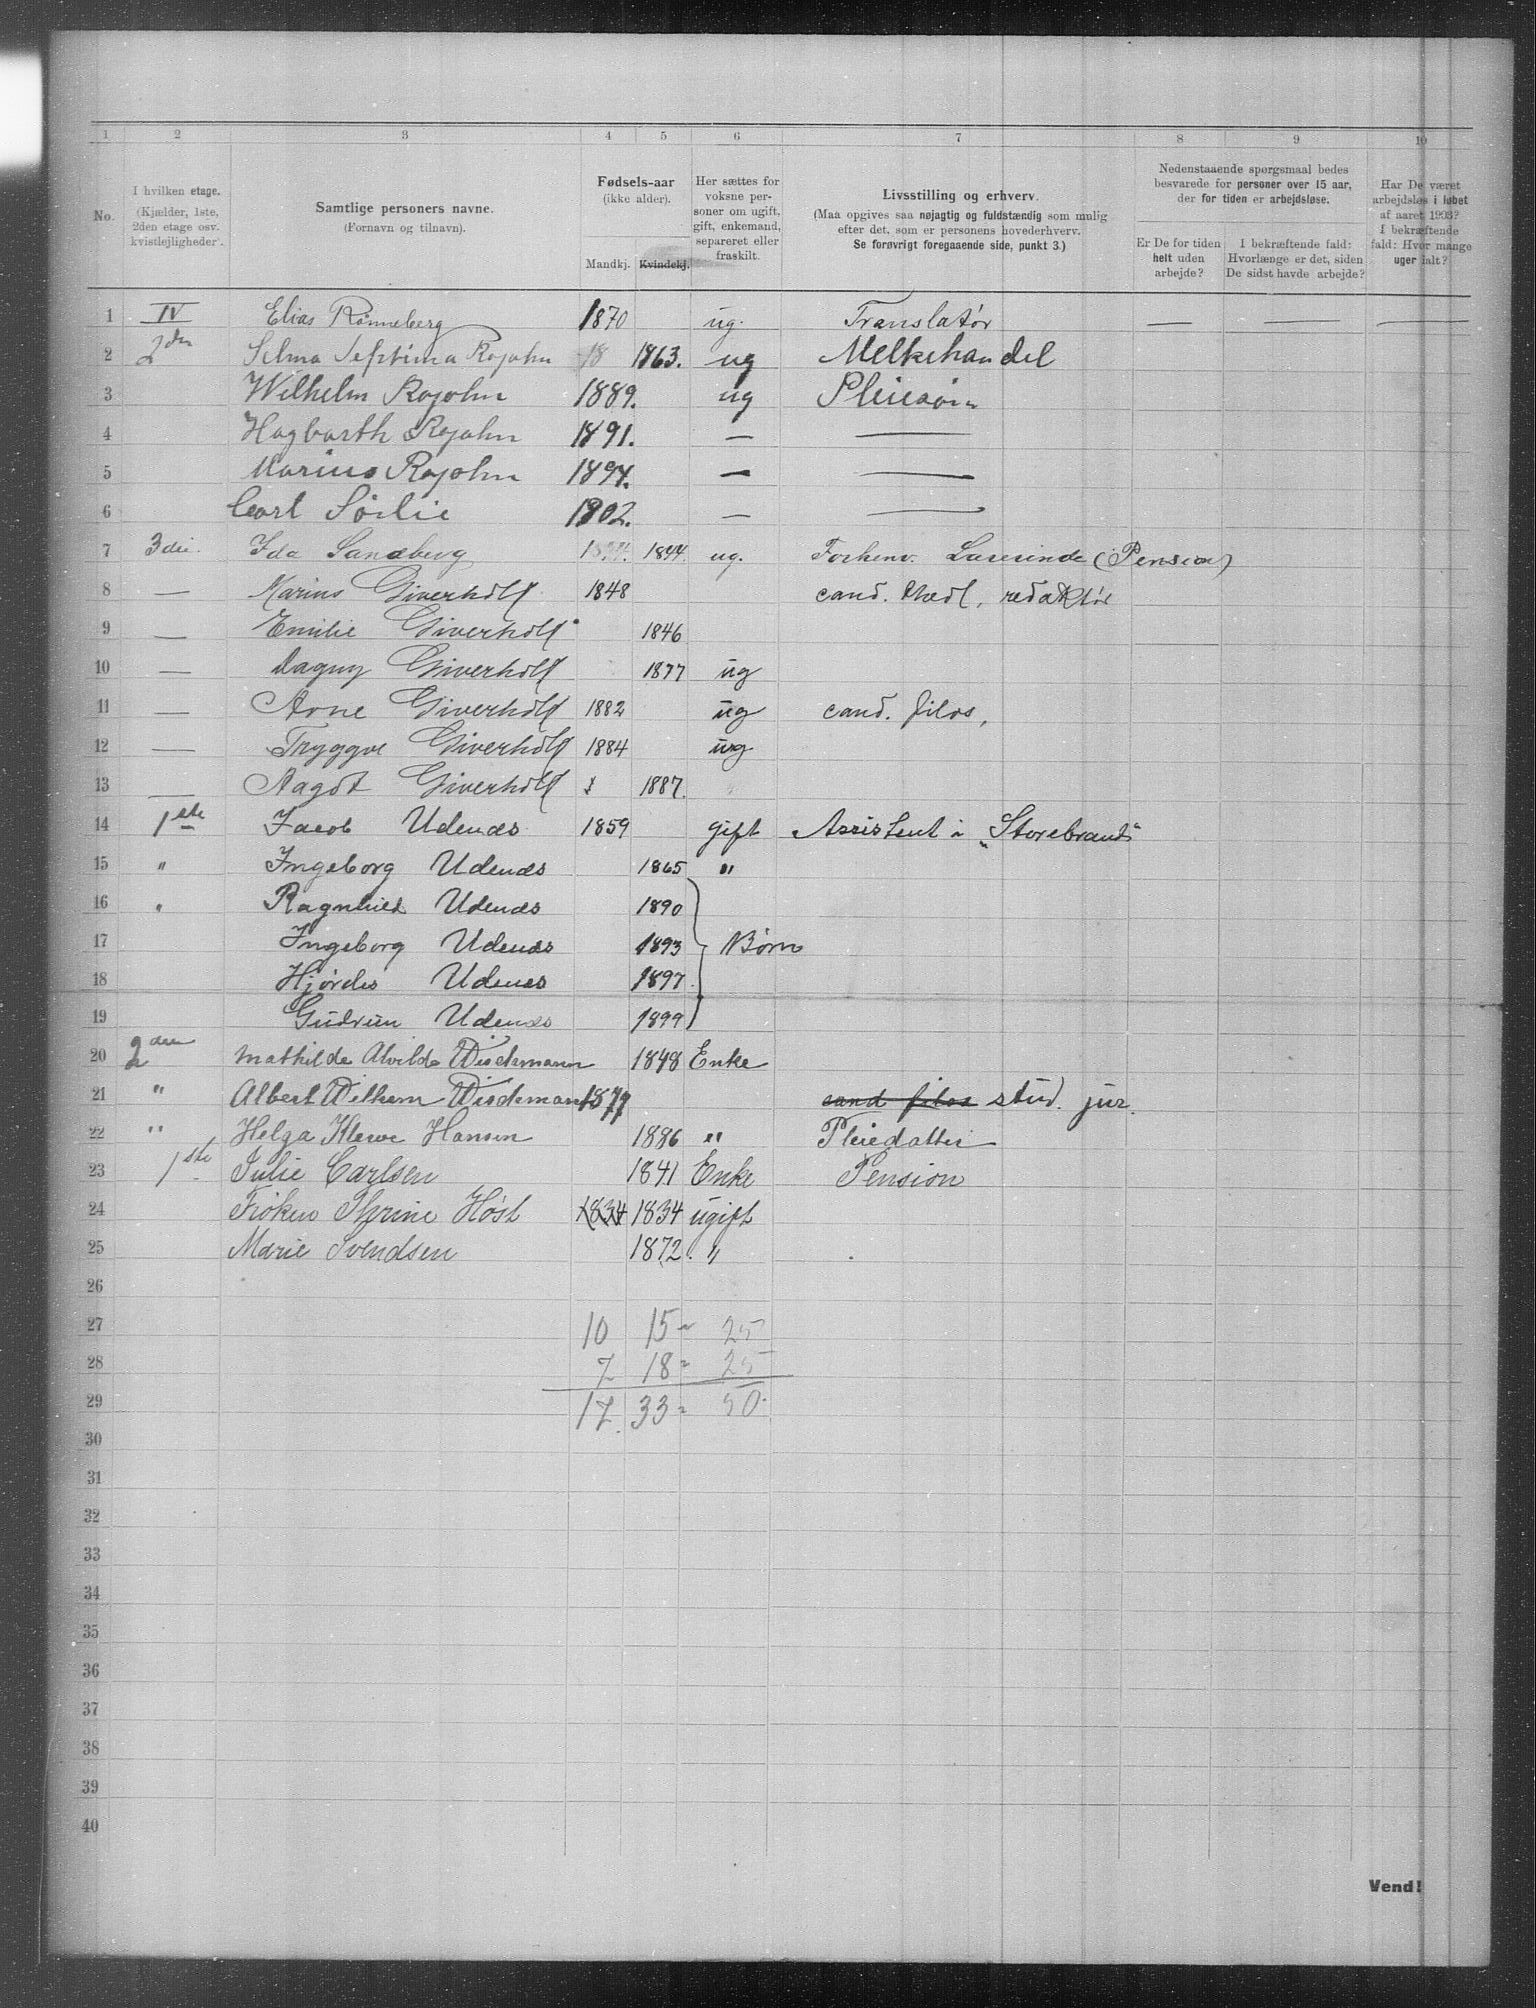 1 2 3 4 5 6 7 8 9 10
No.
I hvilken etage.
(Kjælder, 1ste,
2den etage osv.
kvistlejligheder).
Samtlige personers navne.
(Fornavn og tilnavn).
Fødsels-aar
(ikke alder).
Mandkj. Kvindekj.
Her sættes for
voksne per-
soner om ugift,
gift, enkemand,
separeret eller
fraskilt.
Livsstilling og erhverv.
(Maa opgives saa nøjagtig og fuldstændig som mulig
efter det, som er personens hovederhverv.
Se forøvrigt foregaaende side, punkt 3.)
Nedenstaaende spørgsmaal bedes
besvarede for personer over 15 aar,
der for tiden er arbejdsløse.
Er De for tiden
helt uden
arbejde?
I bekræftende fald:
Hvorlænge er det, siden
De sidst havde arbejde?
Har De været
arbejdsløs i løbet
af aaret 1903?
I bekræftende
fald: Hvor mange
uger ialt?
1 IV Elias Rønneberg 1870 ug. Translatør — — —
2 2den Selma Septima Rojahn 18 1863. ug Melkehandel
3 Wilhelm Rojahn 1889. ug Pleiesøn
4 Hagbarth Rojahn 1891. — —
5 Marius Rojohn 1894. — —
6 Carl Sørlie 1902. — —
7 3die. Ida Sandberg 1844 ug. Forhenv. Lærerinde (Pension)
8 — Marius Giverholt 1848 cand. theol, redaktør
9 — Emilie Giverholt 1846
10 — Dagny Giverholt 1877 ug
11 — Arne Giverholt 1882 ug cand. filos,
12 — Tryggve Giverholt 1884 ug
13 — Aagot Giverholt 1887.
14 1ste Jacob Udenæs 1859 gift Assistent i „Storebrand“
15 " Ingeborg Udenæs 1865 "
16 " Ragnhild Udenæs 1890
17 Ingeborg Udenæs 1893 Børn
18 Hjørdis Udenæs 1897
19 Gudrun Udenæs 1899
20 2den Mathilde Alvilde Wisdemann 1848 Enke
21 " Albert Wilhem Wisdemann 1877 cand filos stud. jur.
22 " Helga Hansen 1886 " Pleiedatter
23 1ste Julie Carlsen 1841 Enke Pension
24 Frøken Thrine Høst 1834 1834 ugift
25 Marie Svendsen 1872. "
26
27 10 15 = 25
28 7 18 = 25
29 17. 33 = 50.
30
31
32
33
34
35
36
37
38
39
40
Vend!